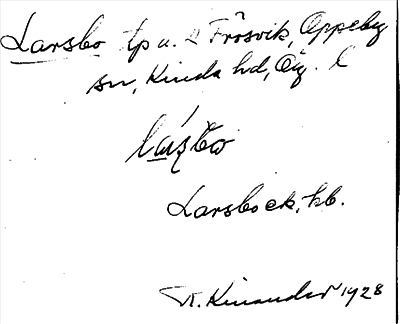 Larsbo tp u. Frösvik, Oppeby
sn, Kinda hd, Ög. l
Larsbo ek. kb.
R. Kinander 1928